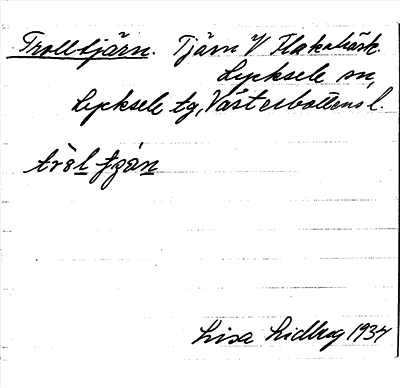 Trolltjärn. Tjärn V Flakaträsk.
Lycksele sn,
Lycksele tg, Västerbottens l.
tròl tjạ́n
Lisa Lidberg 1934